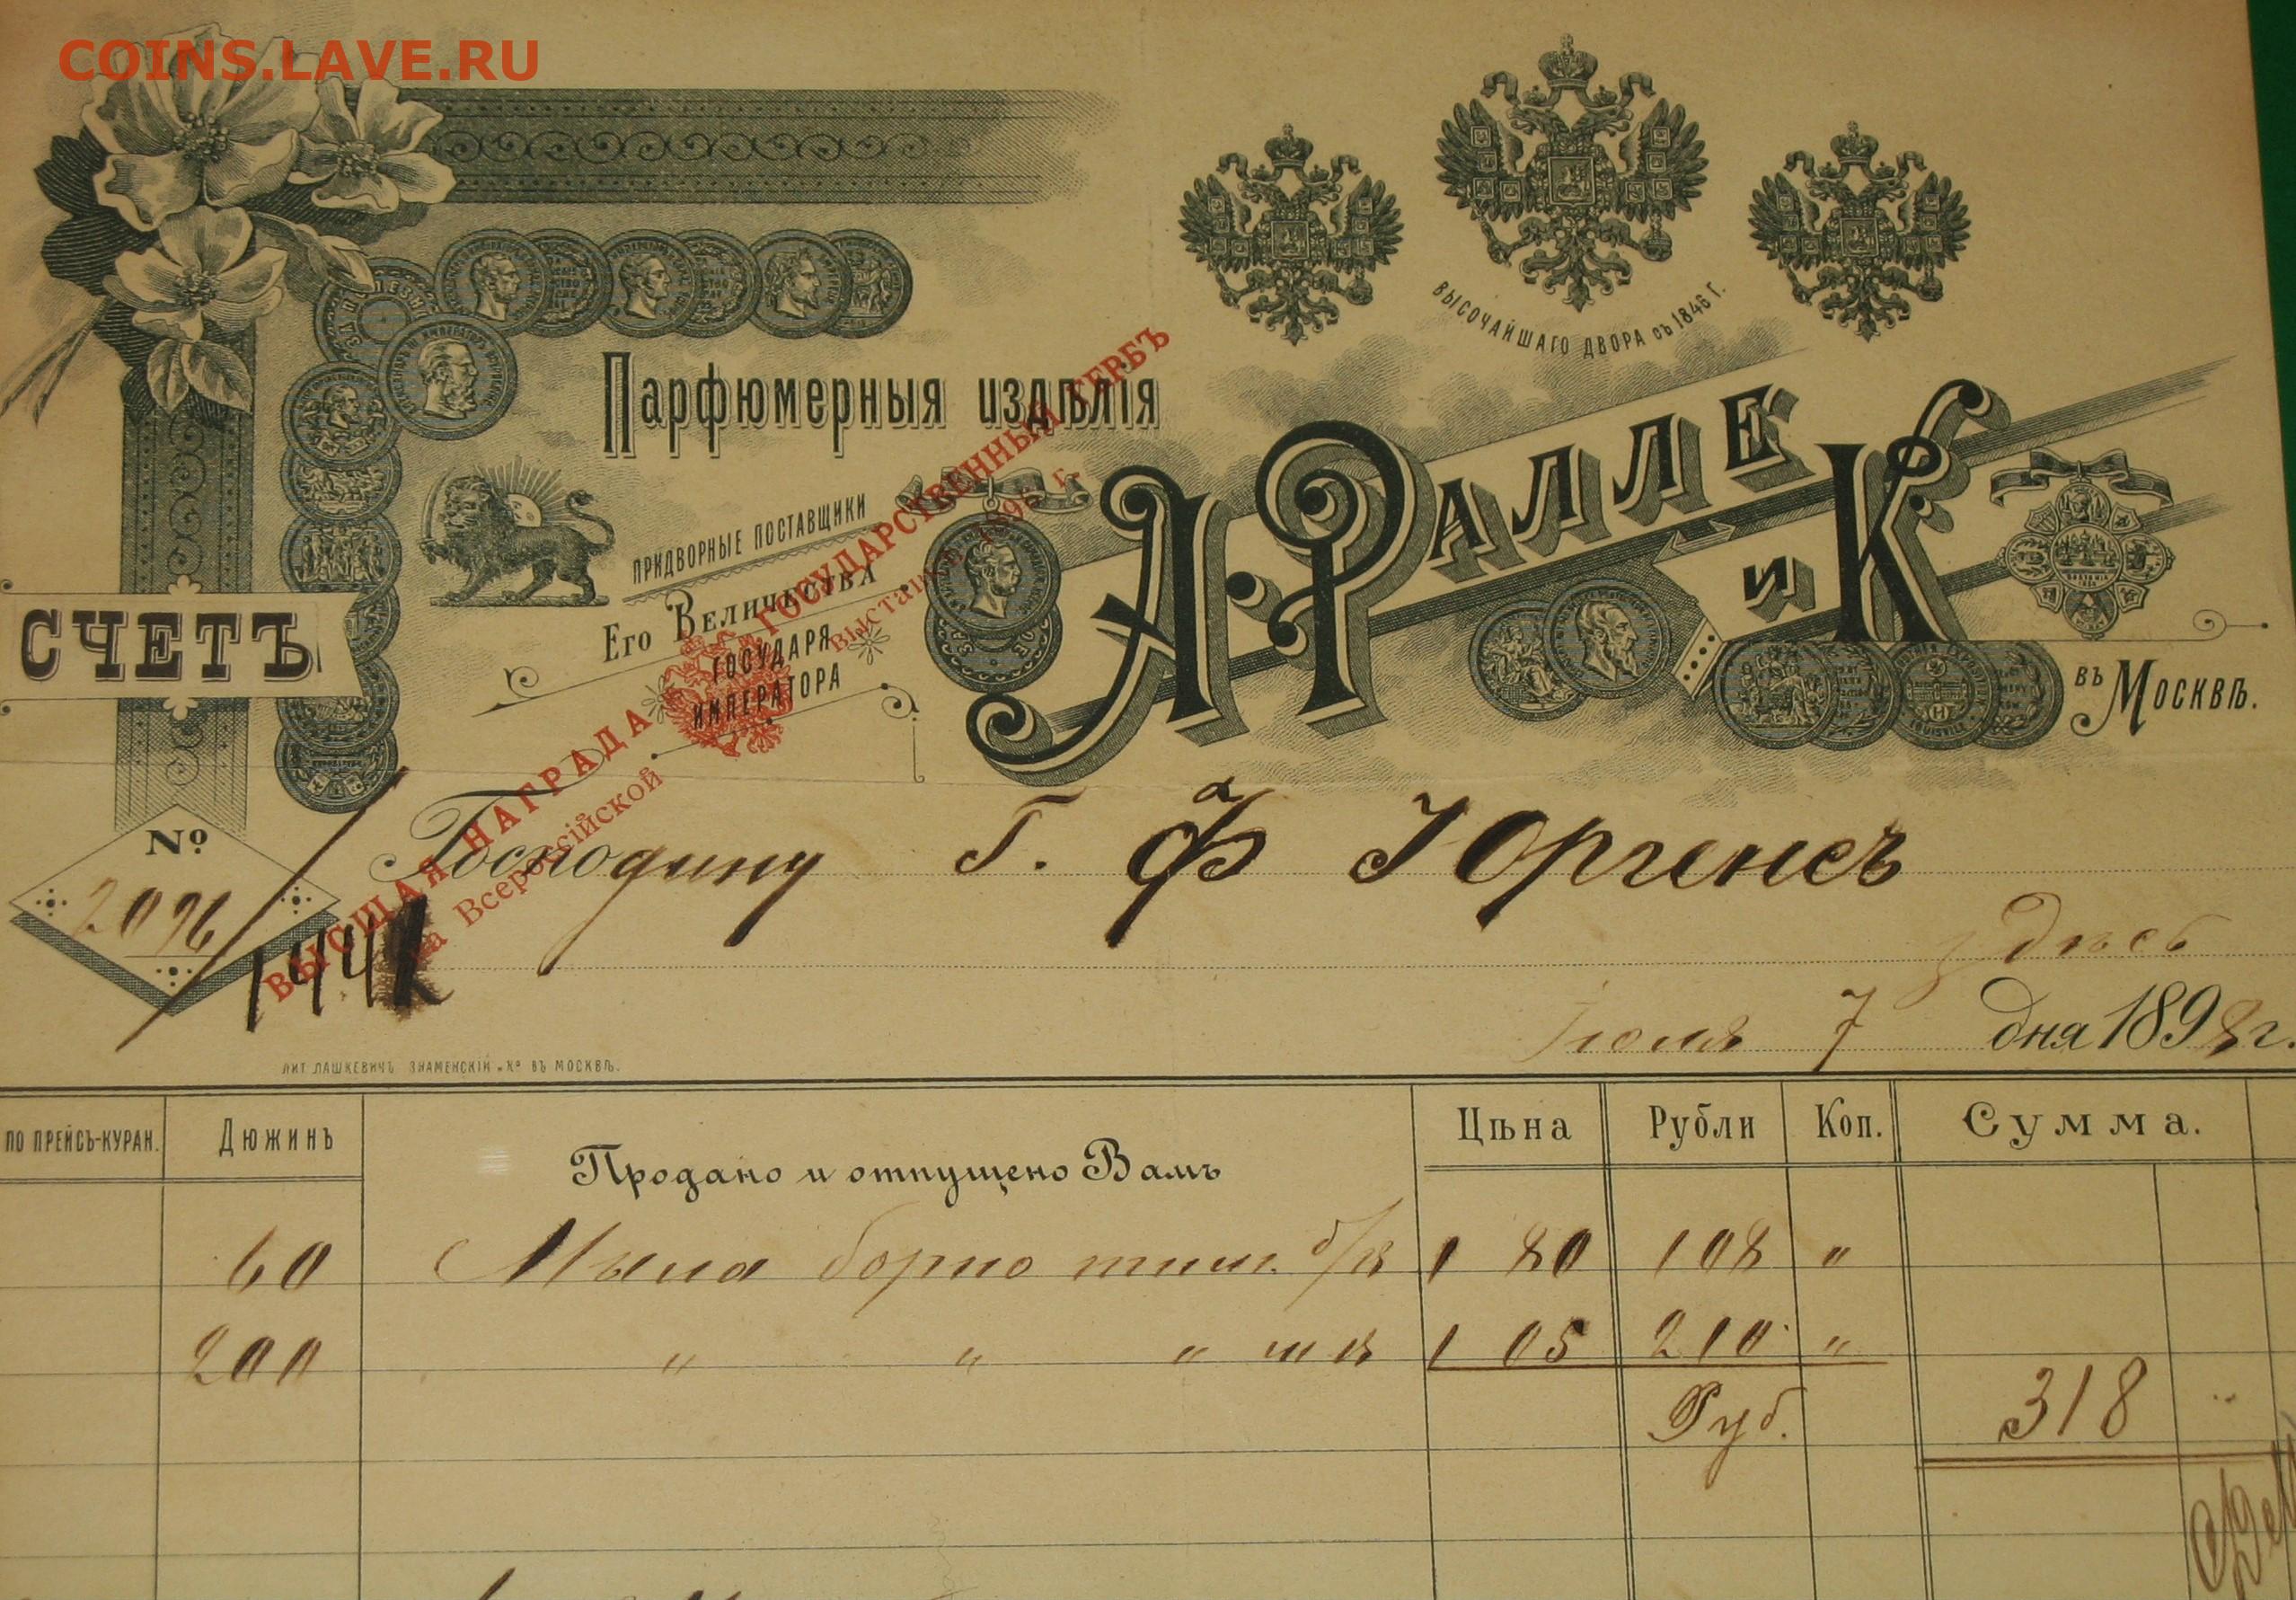 COINS.LAVE.RU
ВЫСОЧАЙШАГО ДВОРА съ 1846 г.
Парфюмерныя издѣлія
ПРИДВОРНЫЕ ПОСТАВЩИКИ
Его Величества
ГОСУДАРЯ
ИМПЕРАТОРА
А. Ралле и К
въ Москвѣ.
СЧЕТЪ
ВЫСШАЯ НАГРАДА ГОСУДАРСТВЕННЫЙ ГЕРБЪ
на Всероссійской выставкѣ 1896 г.
№
2096
Господину Г. Ф Юргенсъ
здѣсь
Іюля 7 дня 1898 г.
ЛИТ ЛАШКЕВИЧЪ ЗНАМЕНСКІЙ и Ко ВЪ МОСКВѢ.
ПО ПРЕЙСЪ-КУРАН. Дюжинъ Продано и отпущено Вамъ Цѣна Рубли Коп. Сумма.
60 Мыла борно тим. б/к 1 80 108 "
200 " " " 1 05 210 "
Руб. 318